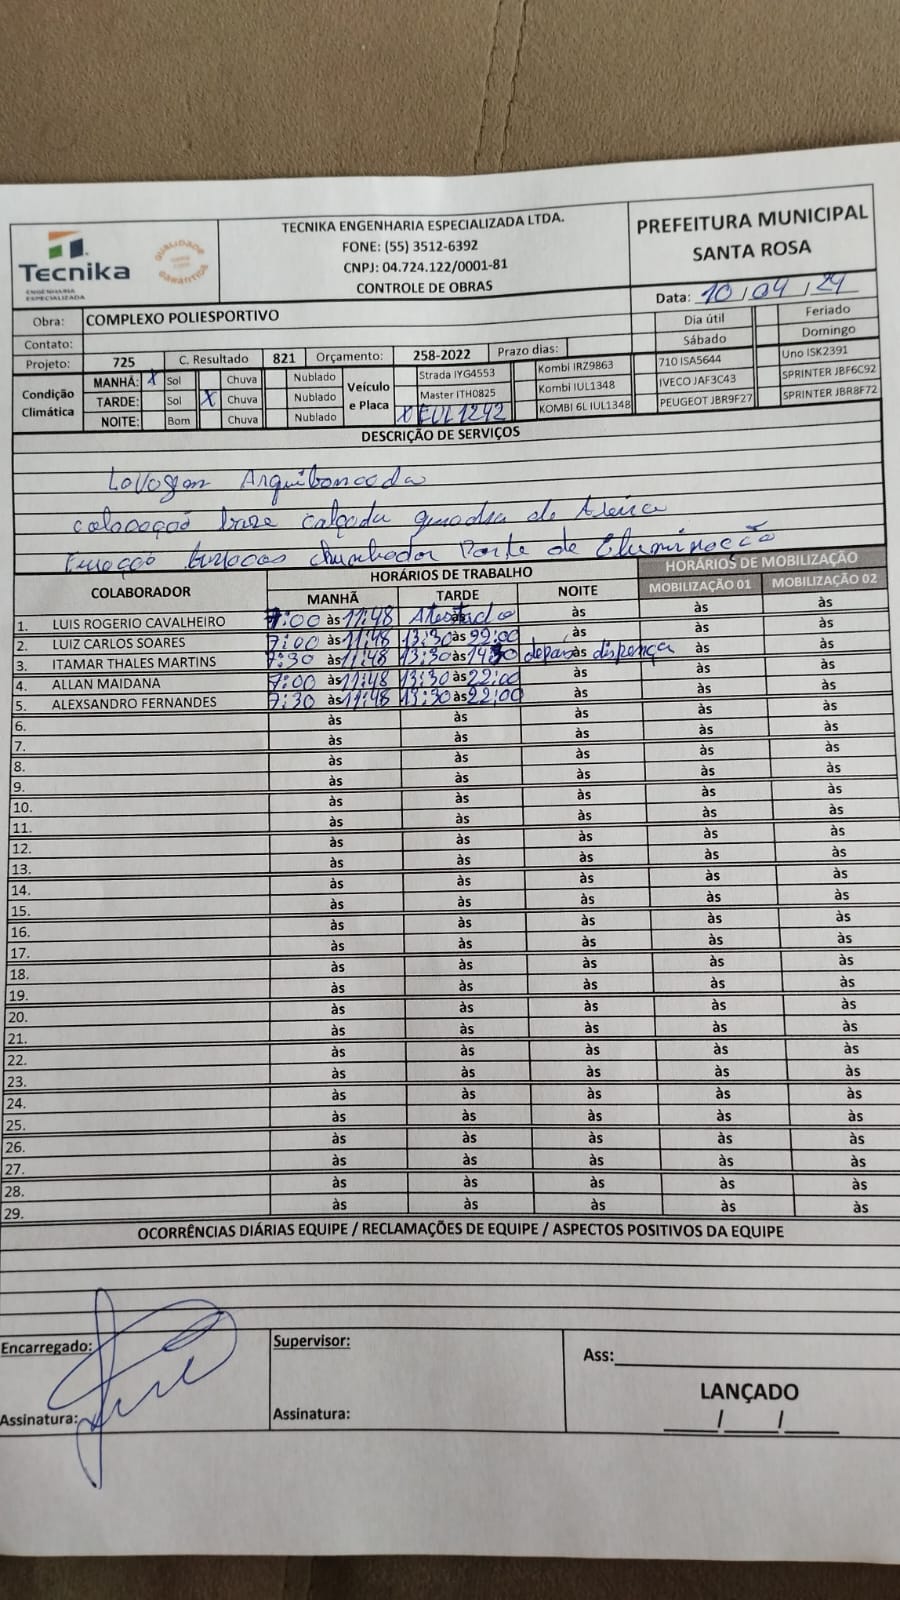 Tecnika
ENGENHARIA
ESPECIALIZADA
QUALIDADE
GARANTIDA
TECNIKA ENGENHARIA ESPECIALIZADA LTDA.
FONE: (55) 3512-6392
CNPJ: 04.724.122/0001-81
CONTROLE DE OBRAS
PREFEITURA MUNICIPAL
SANTA ROSA
Data: 10/04/24
Obra: COMPLEXO POLIESPORTIVO
Dia útil Feriado
Contato: Sábado Domingo
Projeto: 725 C. Resultado 821 Orçamento: 258-2022 Prazo dias:
Condição Climática
MANHÃ: X Sol Chuva Nublado
TARDE: Sol X Chuva Nublado
NOITE: Bom Chuva Nublado
Veículo e Placa
Strada IYG4553 Kombi IRZ9863 710 ISA5644 Uno ISK2391
Master ITH0825 Kombi IUL1348 IVECO JAF3C43 SPRINTER JBF6C92
X EUL1242 KOMBI 6L IUL1348 PEUGEOT JBR9F27 SPRINTER JBR8F72
DESCRIÇÃO DE SERVIÇOS
Lavagem Arquibancada
colocação base calçada quadra de Areia
buracos chumbador Poste de Eluminação
COLABORADOR HORÁRIOS DE TRABALHO HORÁRIOS DE MOBILIZAÇÃO
MANHÃ TARDE NOITE MOBILIZAÇÃO 01 MOBILIZAÇÃO 02
1. LUIS ROGERIO CAVALHEIRO 7:00 às 11:48 Atestado às às às
2. LUIZ CARLOS SOARES 7:00 às 11:48 13:30 às 22:00 às às às
3. ITAMAR THALES MARTINS 7:30 às 11:48 13:30 às 14:30 depois às dispença às às
4. ALLAN MAIDANA 7:00 às 11:48 13:30 às 22:00 às às às
5. ALEXSANDRO FERNANDES 7:30 às 11:48 13:30 às 22:00 às às às
6. às às às às às
7. às às às às às
8. às às às às às
9. às às às às às
10. às às às às às
11. às às às às às
12. às às às às às
13. às às às às às
14. às às às às às
15. às às às às às
16. às às às às às
17. às às às às às
18. às às às às às
19. às às às às às
20. às às às às às
21. às às às às às
22. às às às às às
23. às às às às às
24. às às às às às
25. às às às às às
26. às às às às às
27. às às às às às
28. às às às às às
29. às às às às às
OCORRÊNCIAS DIÁRIAS EQUIPE / RECLAMAÇÕES DE EQUIPE / ASPECTOS POSITIVOS DA EQUIPE
Encarregado: Supervisor: Ass:
LANÇADO
Assinatura: Assinatura: / /